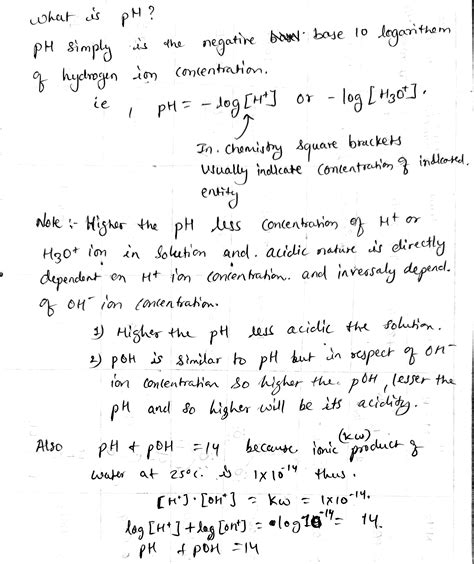 what is pH?
pH simply is the negative base 10 logarithem
of hydrogen ion concentration.
ie, pH = -log[H⁺] or -log[H3O⁺].
In chemistry square brackets
usually indicate concentration of indicated
entity
Note :- Higher the pH less concentration of H⁺ or
H3O⁺ ion in solution and. acidic nature is directly
dependent on H⁺ ion concentration. and inversaly depend.
of OH⁻ ion concentration.
1) Higher the pH less acidic the solution.
2) pOH is similar to pH but in respect of OH⁻
ion concentration so higher the pOH, lesser the
pH and so higher will be its acidity.
Also pH + pOH = 14 because ionic product (Kw) of
water at 25°c. is 1×10⁻¹⁴ thus.
[H⁺]·[OH⁻] = Kw = 1×10⁻¹⁴.
log[H⁺]+log[OH⁻] = log10⁻¹⁴ = 14.
pH + pOH = 14